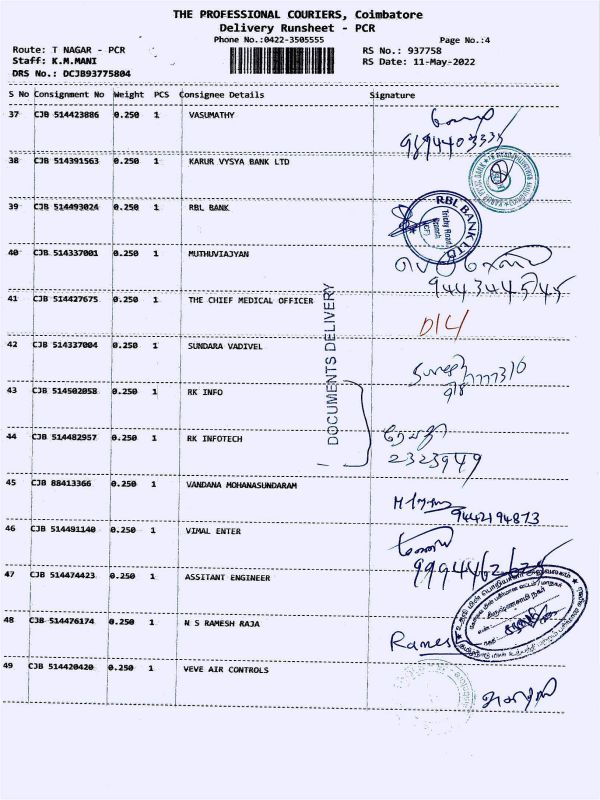 THE PROFESSIONAL COURIERS, Coimbatore
Delivery Runsheet - PCR
Phone No.:0422-3505555
Page No.:4
Route: T NAGAR - PCR
RS No.: 937758
Staff: K.M.MANI
RS Date: 11-May-2022
DRS No.: DCJB93775804
S No Consignment No Weight PCS Consignee Details Signature
37 CJB 514423886 0.250 1 VASUMATHY
9894403335
38 CJB 514391563 0.250 1 KARUR VYSYA BANK LTD
39 CJB 514493024 0.250 1 RBL BANK
RBL BANK LTD
Trichy Road
Branch
40 CJB 514337001 0.250 1 MUTHUVIAJYAN
9443444545
41 CJB 514427675 0.250 1 THE CHIEF MEDICAL OFFICER
D14
DOCUMENTS DELIVERY
42 CJB 514337004 0.250 1 SUNDARA VADIVEL
43 CJB 514502058 0.250 1 RK INFO
44 CJB 514482957 0.250 1 RK INFOTECH
2323949
45 CJB 88413366 0.250 1 VANDANA MOHANASUNDARAM
9442194873
46 CJB 514491140 0.250 1 VIMAL ENTER
47 CJB 514474423 0.250 1 ASSITANT ENGINEER
48 CJB 514476174 0.250 1 N S RAMESH RAJA
Ramesh
49 CJB 514420420 0.250 1 VEVE AIR CONTROLS